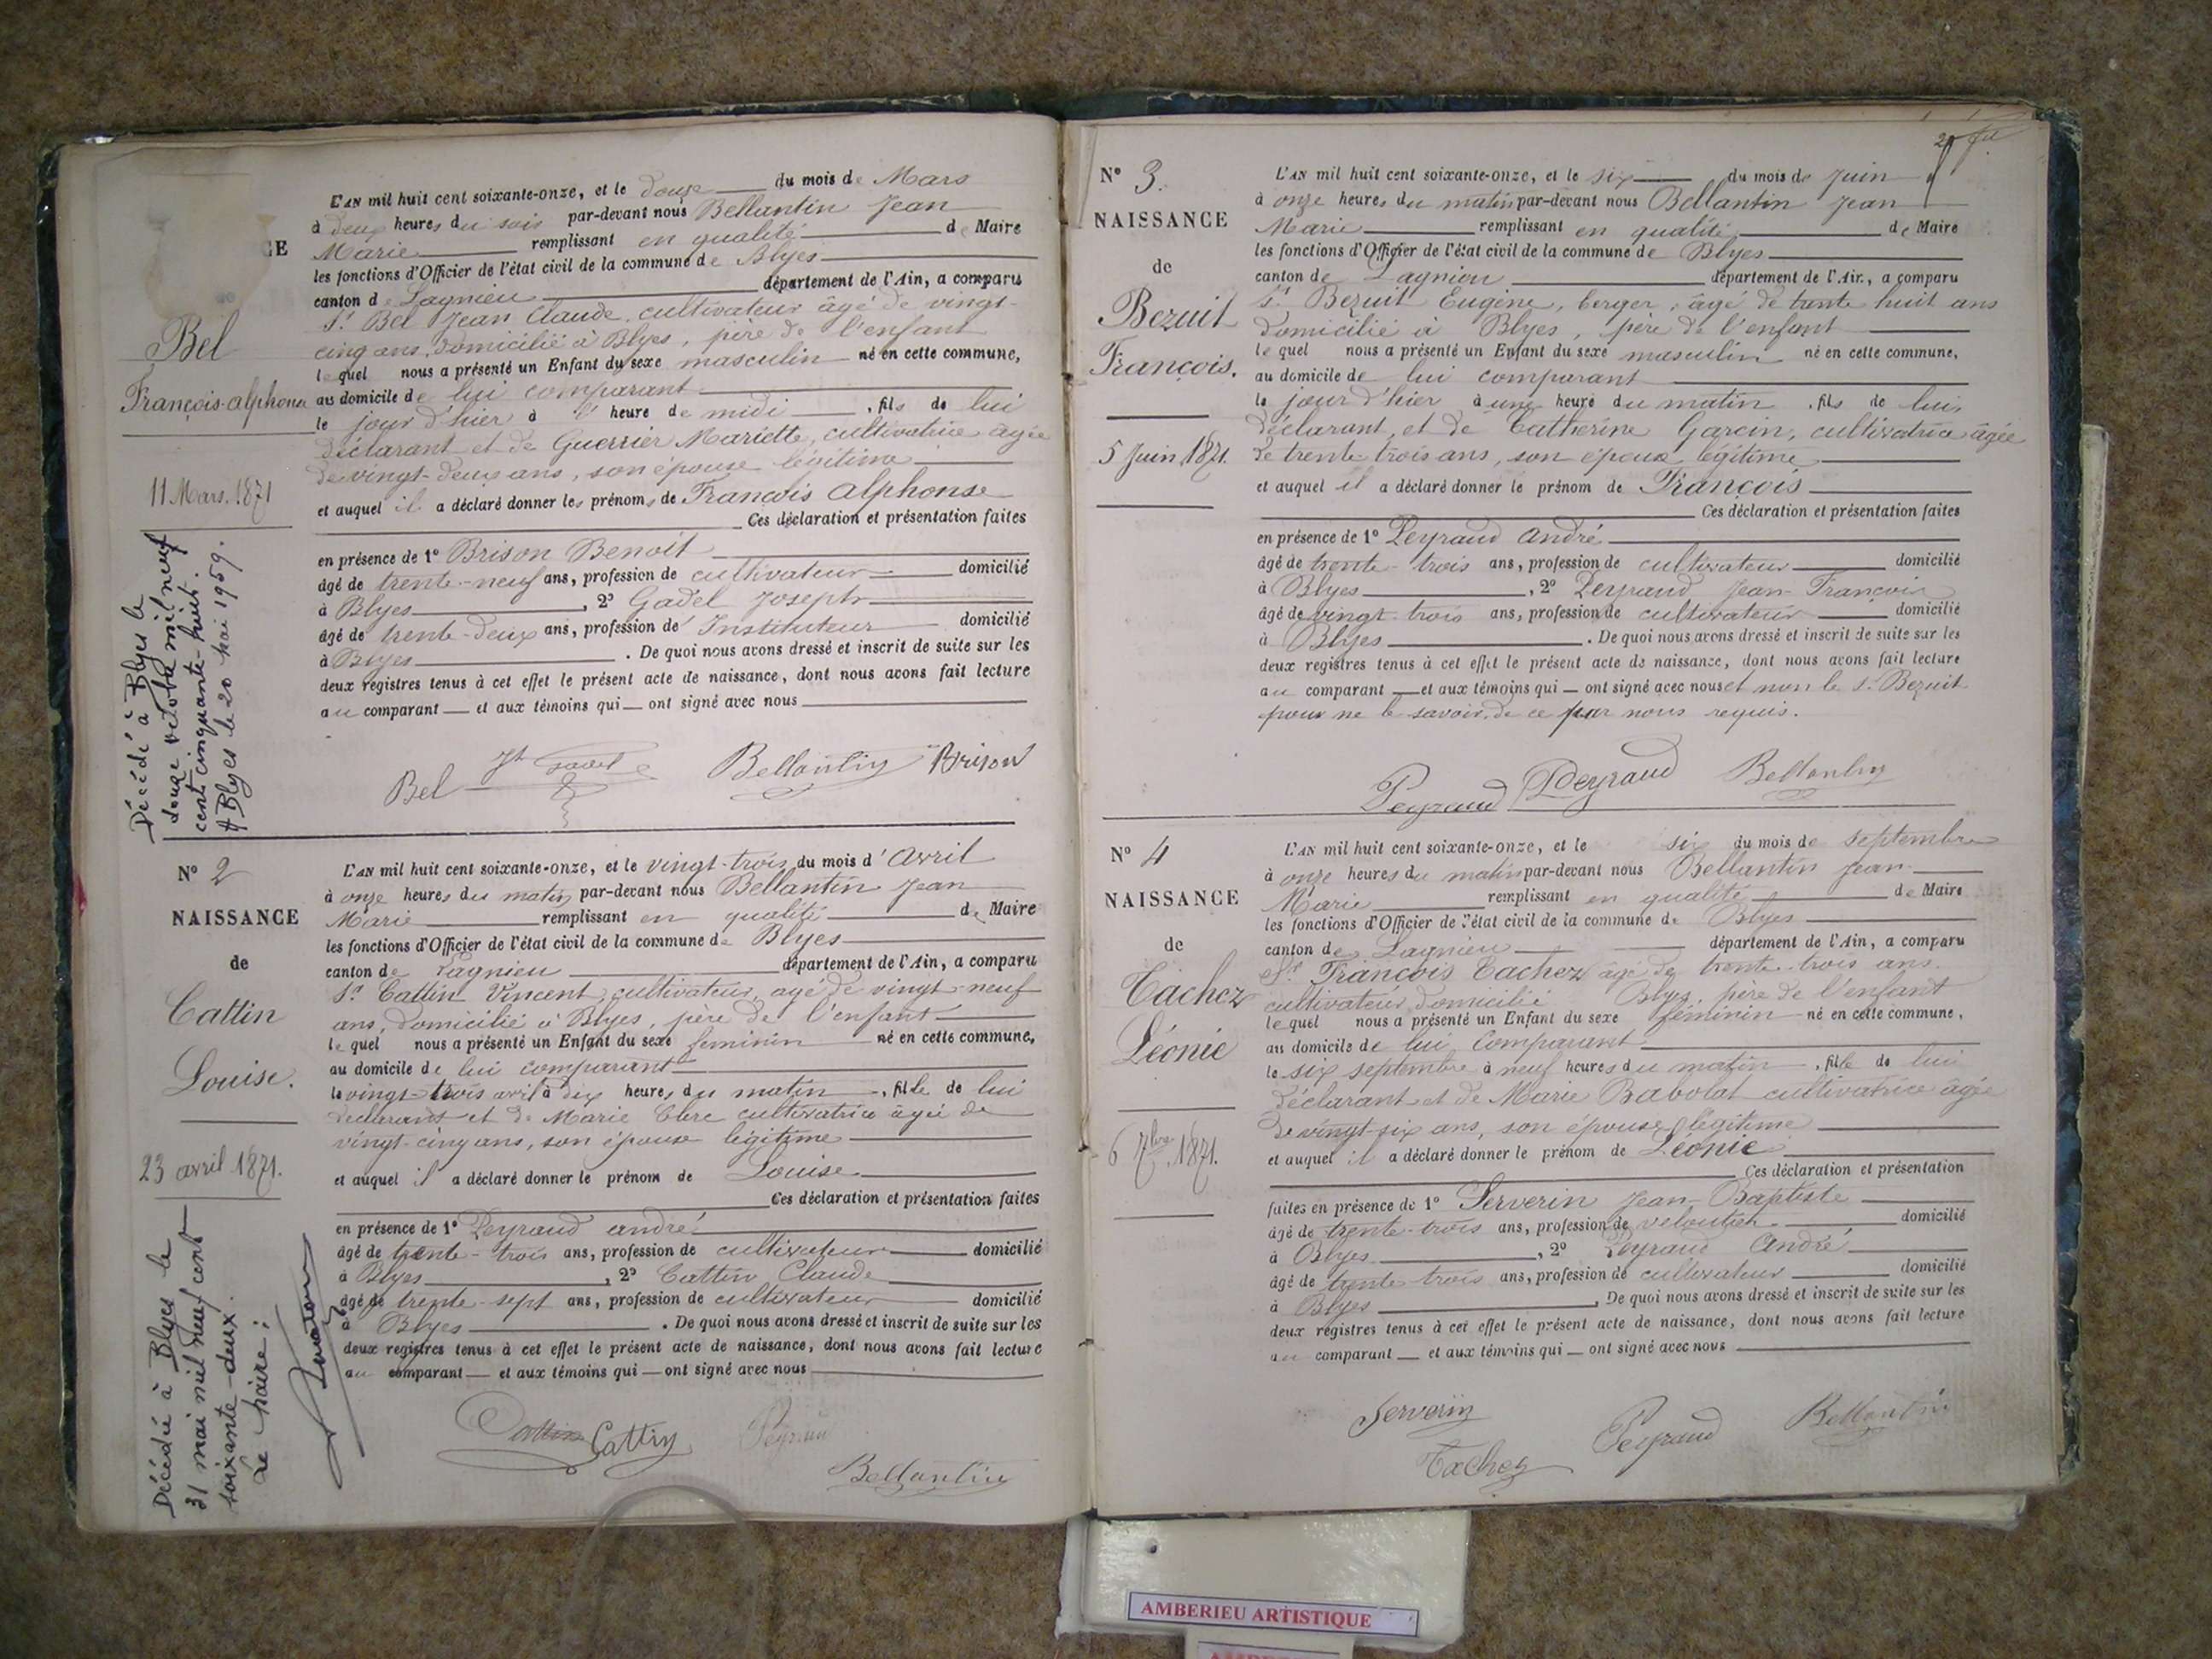 GE
Bel
François-alphonse
11 Mars. 1871
Décédé à Blyes le
douze octobre mil neuf
cent cinquante-huit.
A Blyes le 20 mai 1959.
L'AN mil huit cent soixante-onze, et le douze du mois de Mars
à deux heures du soir par-devant nous Bellantin Jean
Marie remplissant en qualité de Maire
les fonctions d'Officier de l'état civil de la commune de Blyes
canton de Lagnieu département de l'Ain, a comparu
Sr Bel Jean Claude, cultivateur âgé de vingt-
cinq ans, domicilié à Blyes, père de l'enfant
lequel nous a présenté un Enfant du sexe masculin né en cette commune,
au domicile de lui comparant
le jour d'hier à l' heure de midi, fils de lui
déclarant et de Guerrier Mariette, cultivatrice âgée
de vingt-deux ans, son épouse légitime
et auquel il a déclaré donner les prénoms de François Alphonse
Ces déclaration et présentation faites
en présence de 1º Brison Benoit
âgé de trente-neuf ans, profession de cultivateur domicilié
à Blyes, 2º Gadel Joseph
âgé de trente-deux ans, profession de Instituteur domicilié
à Blyes. De quoi nous avons dressé et inscrit de suite sur les
deux registres tenus à cet effet le présent acte de naissance, dont nous avons fait lecture
au comparant et aux témoins qui ont signé avec nous
Bel Jh Gadel Bellantin Brison
Nº 2
NAISSANCE
de
Cattin
Louise.
23 avril 1871.
Décédée à Blyes le
31 mai mil neuf cent
soixante-deux.
Le Maire:
L'AN mil huit cent soixante-onze, et le vingt-trois du mois d'Avril
à onze heures du matin par-devant nous Bellantin Jean
Marie remplissant en qualité de Maire
les fonctions d'Officier de l'état civil de la commune de Blyes
canton de Lagnieu département de l'Ain, a comparu
Sr Cattin Vincent, cultivateur, agé de vingt-neuf
ans, domicilié à Blyes, père de l'enfant
lequel nous a présenté un Enfant du sexe feminin né en cette commune,
au domicile de lui comparant
le vingt-trois avril à dix heures du matin, fille de lui
déclarant et de Marie Clerc cultivatrice âgée de
vingt-cinq ans, son épouse légitime
et auquel il a déclaré donner le prénom de Louise
Ces déclaration et présentation faites
en présence de 1º Peyraud andré
âgé de trente-trois ans, profession de cultivateur domicilié
à Blyes, 2º Cattin Claude
âgé de trente-sept ans, profession de cultivateur domicilié
à Blyes. De quoi nous avons dressé et inscrit de suite sur les
deux registres tenus à cet effet le présent acte de naissance, dont nous avons fait lecture
au comparant et aux témoins qui ont signé avec nous
Cattin Cattin Peyraud
Bellantin
Nº 3.
NAISSANCE
de
Bezuit
François.
5 Juin 1871.
L'AN mil huit cent soixante-onze, et le six du mois de Juin
à onze heures du matin par-devant nous Bellantin Jean
Marie remplissant en qualité de Maire
les fonctions d'Officier de l'état civil de la commune de Blyes
canton de Lagnieu département de l'Ain, a comparu
Sr Bezuit Eugène, berger, âgé de trente huit ans
domicilié à Blyes, père de l'enfant
lequel nous a présenté un Enfant du sexe masculin né en cette commune,
au domicile de lui comparant
le jour d'hier à une heure du matin, fils de lui
déclarant, et de Catherine Garcin, cultivatrice âgée
de trente trois ans, son épouse légitime
et auquel il a déclaré donner le prénom de François
Ces déclaration et présentation faites
en présence de 1º Peyraud André
âgé de trente-trois ans, profession de cultivateur domicilié
à Blyes, 2º Peyraud Jean-François
âgé de vingt-trois ans, profession de cultivateur domicilié
à Blyes. De quoi nous avons dressé et inscrit de suite sur les
deux registres tenus à cet effet le présent acte de naissance, dont nous avons fait lecture
au comparant et aux témoins qui ont signé avec nous et non le Sr Bezuit
pour ne le savoir, de ce par nous requis.
Peyraud Peyraud Bellantin
Nº 4
NAISSANCE
de
Tachez
Léonie
6 7bre 1871.
L'AN mil huit cent soixante-onze, et le six du mois de Septembre
à onze heures du matin par-devant nous Bellantin Jean
Marie remplissant en qualité de Maire
les fonctions d'Officier de l'état civil de la commune de Blyes
canton de Lagnieu département de l'Ain, a comparu
Sr François Tachez âgé de trente-trois ans
cultivateur, domicilié Blyes, père de l'enfant
lequel nous a présenté un Enfant du sexe féminin né en cette commune,
au domicile de lui Comparant
le six septembre à neuf heures du matin, fille de lui
déclarant et de Marie Babolat cultivatrice âgée
de vingt-six ans, son épouse légitime
et auquel il a déclaré donner le prénom de Léonie
Ces déclaration et présentation
faites en présence de 1º Serverin Jean-Baptiste
âgé de trente-trois ans, profession de veloutier domicilié
à Blyes, 2º Peyraud André
âgé de trente trois ans, profession de cultivateur domicilié
à Blyes. De quoi nous avons dressé et inscrit de suite sur les
deux registres tenus à cet effet le présent acte de naissance, dont nous avons fait lecture
au comparant et aux témoins qui ont signé avec nous
Serverin Peyraud Bellantin
Tachez
AMBERIEU ARTISTIQUE